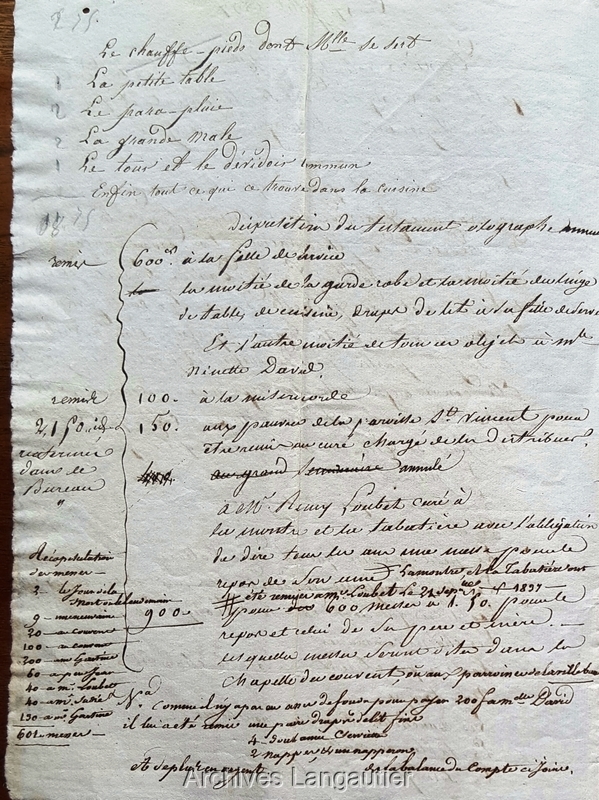 235.
Le chauffe-pieds dont Mlle se sert
1 La petite table
2 Le para-pluie
2 La grande male
1 Le tour et le dévidoir commun
Enfin tout ce que ce trouve dans la cuisine
Disposition du testament olographe
remis 600 à la fille de service
la moitié de la garde robe et la moitié du linge
de tables de cuisine, draps de lit à la fille de
Et l'autre moitié de tous ces objets à Mlle
Ninette David
remise 100. à la miséricorde
2,150 150. aux pauvres de la paroisse St. Vincent pour
être remis au curé chargé de les distribuer
renfermé
dans le
Bureau
"
au grand Séminaire annulé
à Mr. Remy Loubet curé à
la montre et la tabatière avec l'obligation
de dire tous les ans une messe pour le
repos de son âme
La montre et la Tabatière ont
été remises a mr Loubet Le 1837
900 pour 600 messes à 1. 50. pour le
repos et celui de ses père et mère.
lesquelles messes seront dites dans la
chapelle du couvent ou aux parroisses de la ville
Récapitulation
des messes
2 le jour de la
mort et le lendemain
9 neuvaine
20 au couvent
100 au couvent
200 aux
60 a
40 a mr Loubet
40 a mr
130 a mr
601 messes
Na Comme il ny a pas au assez de fonds pour payer 200 f a melle David
il lui a été remis une paire draps de lit fins
4 Serviettes
2 nappes, & un napperon
de la balance du Compte ci joint
Archives Langautier